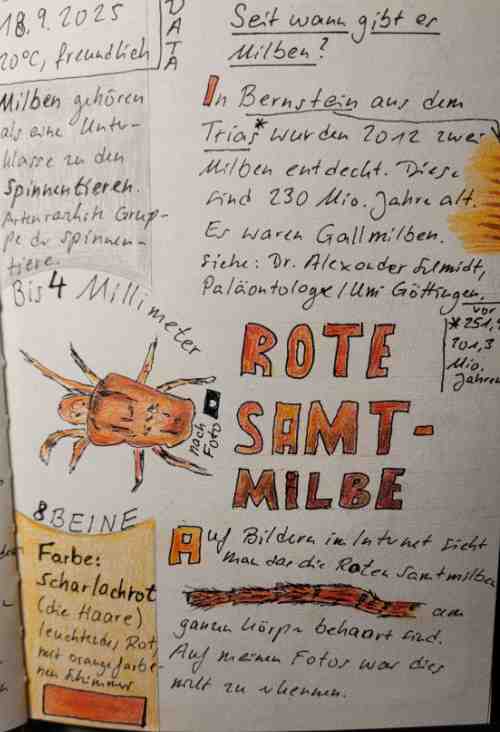 18.9.2025
20°C, freundlich
DATA
Milben gehören
als eine Unter-
klasse zu den
Spinnentieren.
Artenreichste Grup-
pe der Spinnen-
tiere.
Bis 4 Millimeter
nach Foto
8 BEINE
Farbe:
Scharlachrot
(die Haare)
leuchtendes Rot,
mit orangefarbe-
nen Schimmer
Seit wann gibt es
Milben?
In Bernstein aus dem
Trias* wurden 2012 zwei
Milben entdeckt. Diese
sind 230 Mio. Jahre alt.
Es waren Gallmilben.
Siehe: Dr. Alexander Schmidt,
Paläontologe/Uni Göttingen.
vor
*251,9
201,3
Mio.
Jahren
ROTE
SAMT-
MILBE
Auf Bildern im Internet sieht
man das die Roten Samtmilben
am
ganzen Körper behaart sind.
Auf meinen Fotos war dies
nicht zu erkennen.